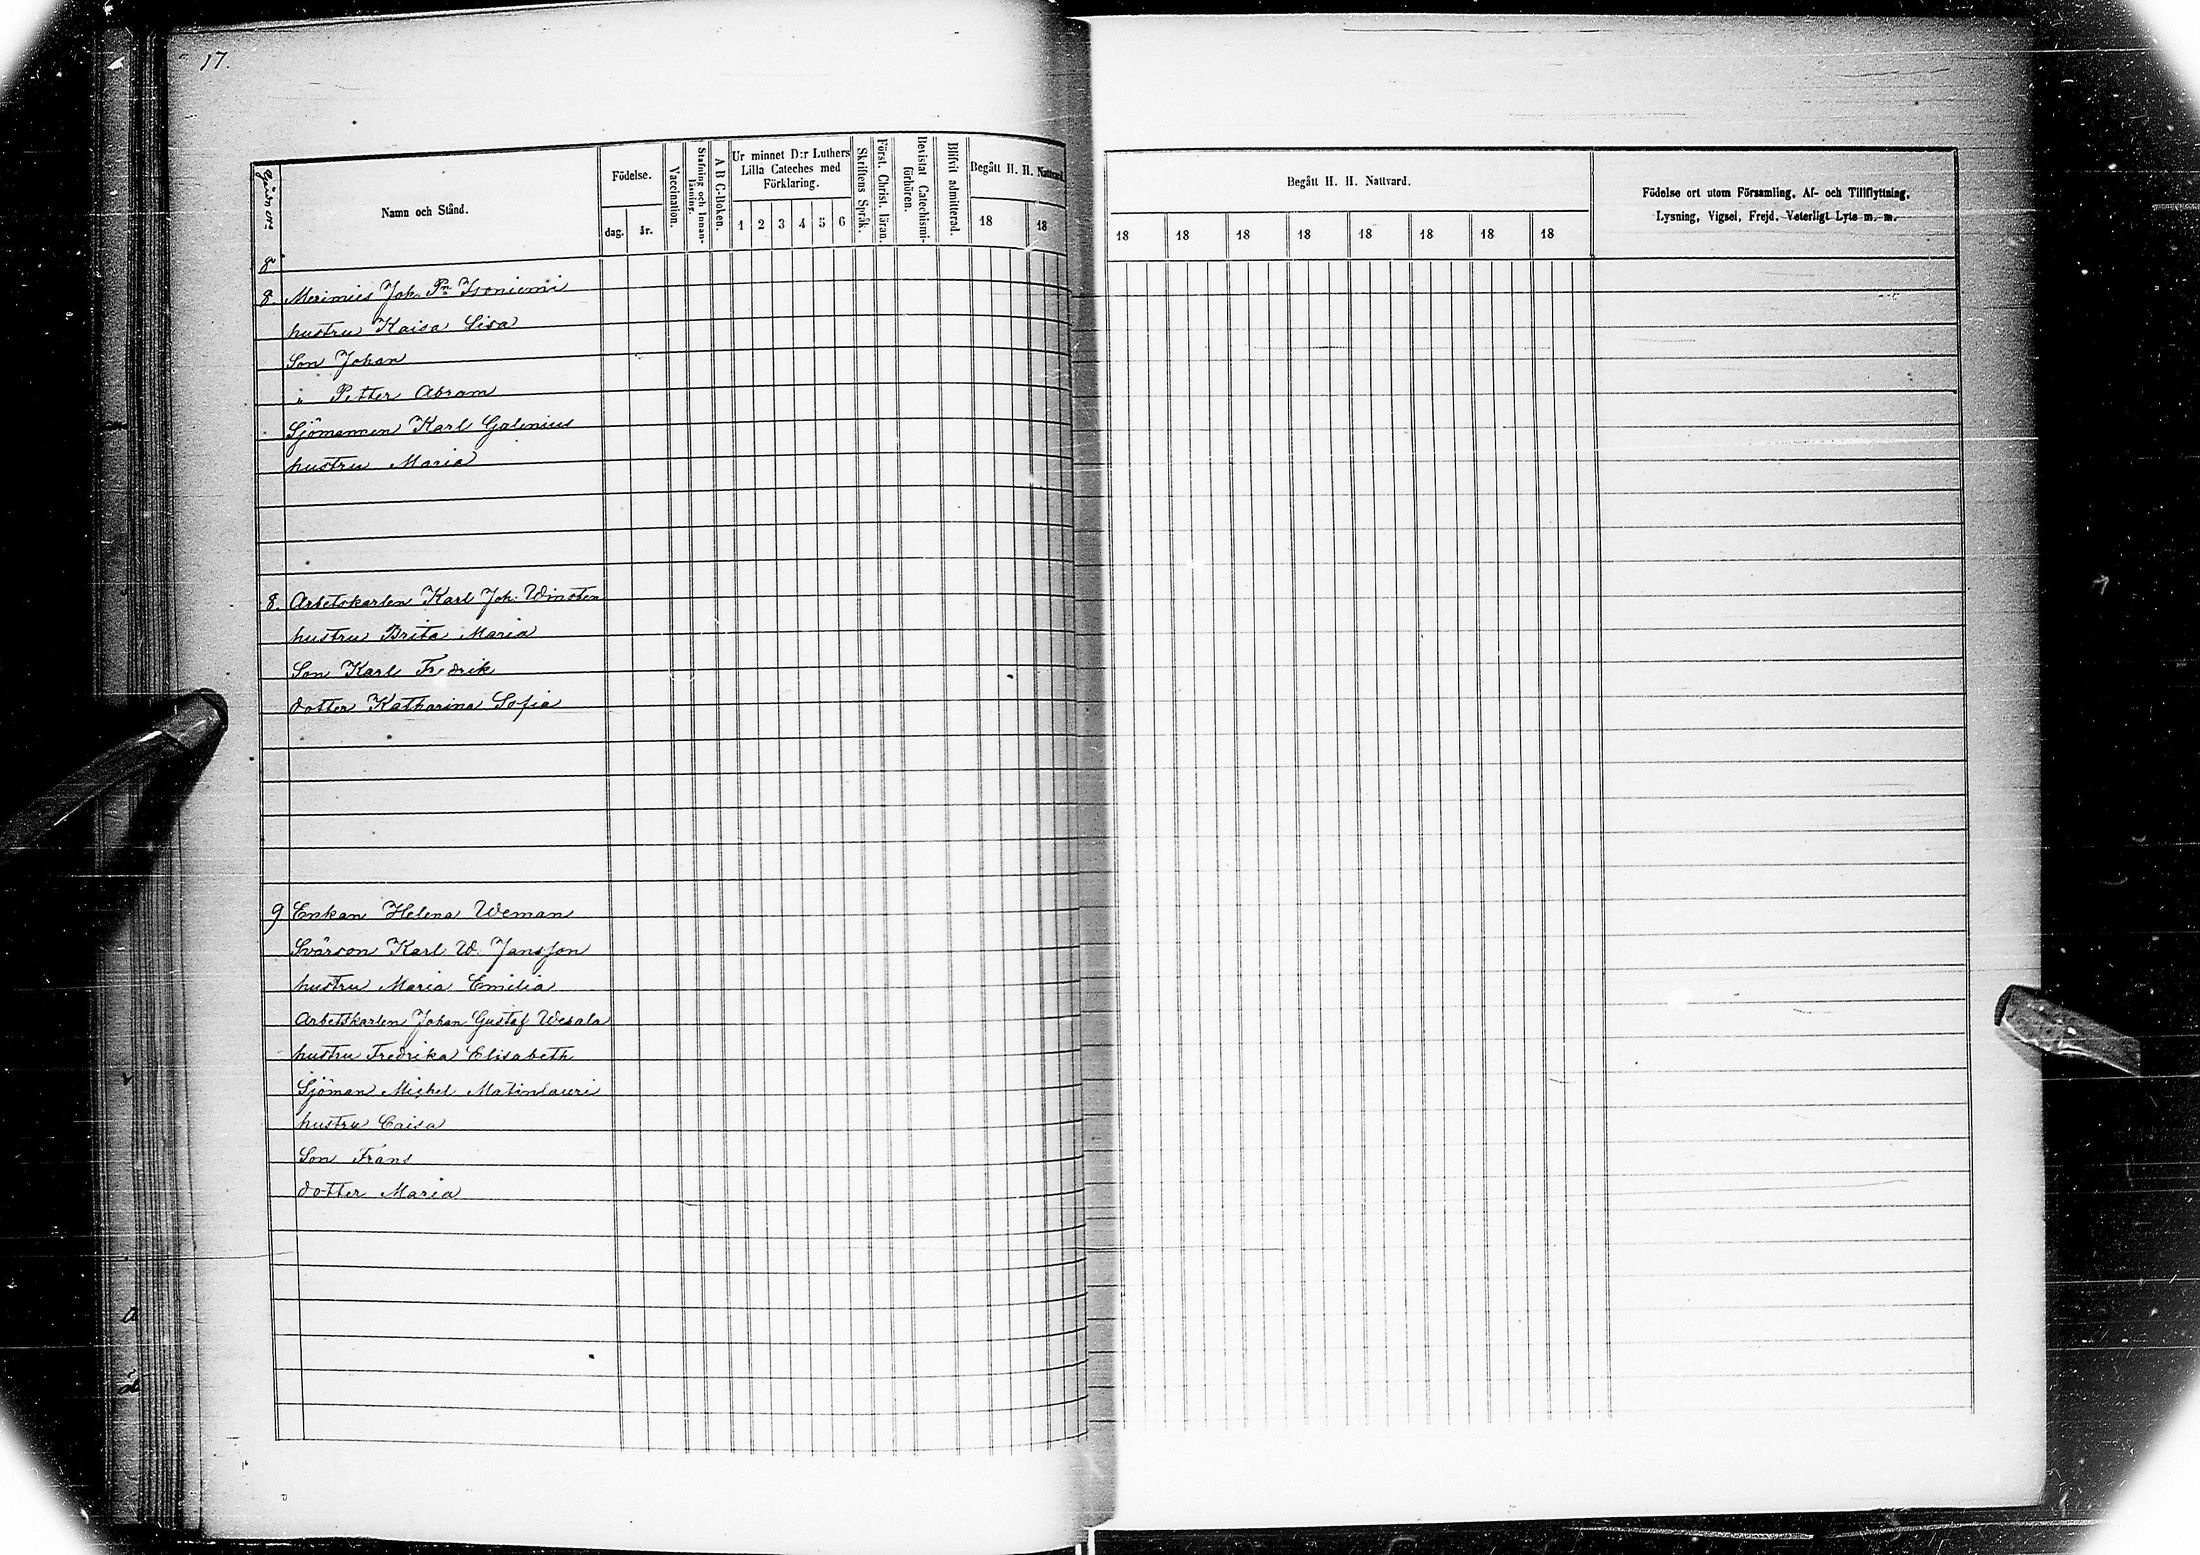 17.
Gård N:o
Namn och Stånd.
Födelse.
dag.
år.
Vaccination.
Stafning och Innanläsning.
A B C-Boken.
Ur minnet D:r Luthers
Lilla Cateches med
Förklaring.
1 2 3 4 5 6
Skriftens Språk.
Först. Christ. läran.
Bevistat Catechismiförhören.
Blifvit admitterad.
Begått H. H. Nattvard.
18 18
Begått H. H. Nattvard.
18 18 18 18 18 18 18 18
Födelse ort utom Församling, Af- och Tillflyttning,
Lysning, Vigsel, Frejd, Veterligt Lyte m. m.
8
8. Merimies Joh. Pn Isoniemi
hustru Kaisa Lisa
Son Johan
" Petter Abram
Sjömannen Karl Galenius
hustru Maria
8. Arbetskarlen Karl Joh. Winsten
hustru Brita Maria
Son Karl Fredrik
dotter Katharina Sofia
9 Enkan Helena Weman
Svärson Karl W. Jansson
hustru Maria Emilia
Arbetskarlen Johan Gustaf Wesala
hustru Fredrika Elisabeth
Sjöman Michel Matinlauri
hustru Caisa
Son Frans
dotter Maria